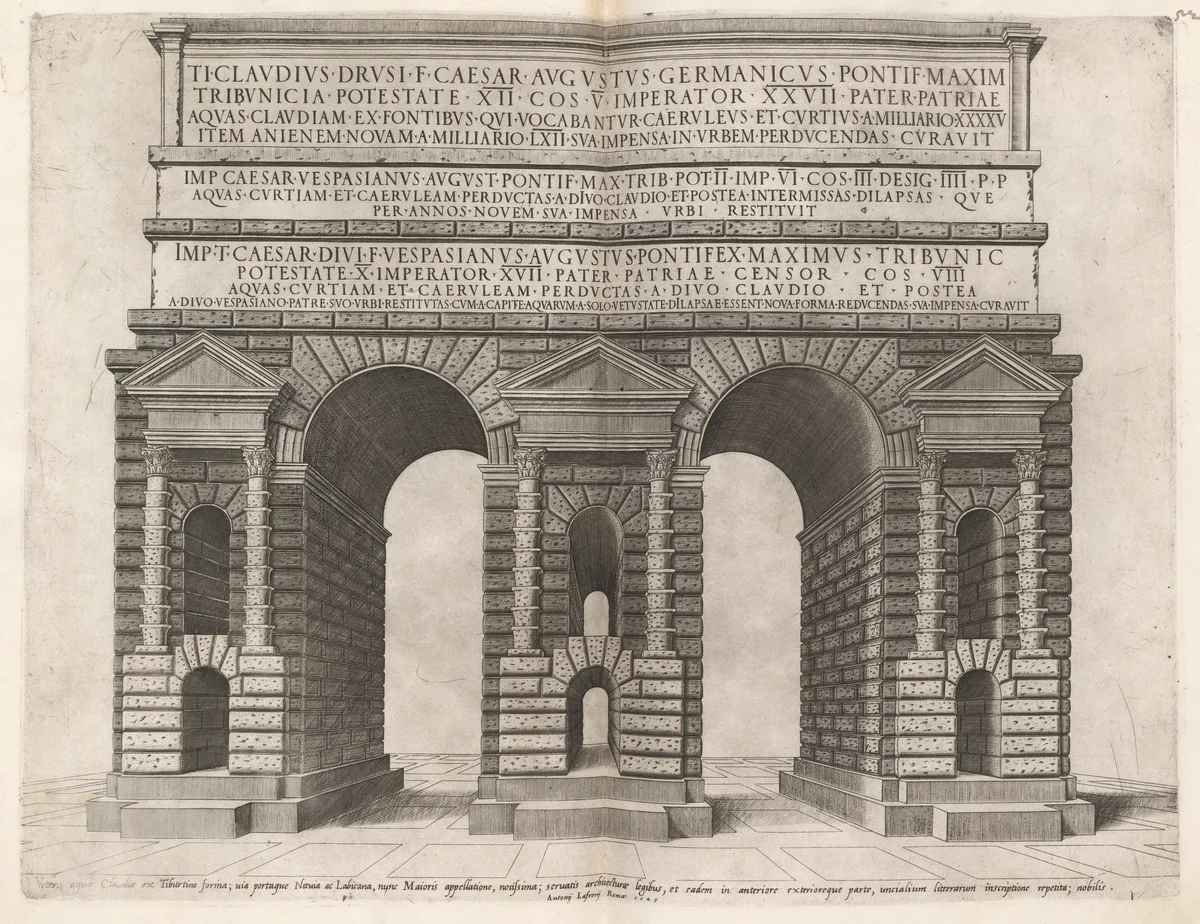 TI·CLAVDIVS·DRVSI·F·CAESAR·AVGVSTVS·GERMANICVS·PONTIF·MAXIM
TRIBVNICIA·POTESTATE·XII·COS·V·IMPERATOR·XXVII·PATER·PATRIAE
AQVAS·CLAVDIAM·EX·FONTIBVS·QVI·VOCABANTVR·CAERVLEVS·ET·CVRTIVS·A·MILLIARIO·XXXXV
ITEM ANIENEM·NOVAM·A·MILLIARIO·LXII·SVA·IMPENSA·IN·VRBEM·PERDVCENDAS·CVRAVIT
IMP CAESAR·VESPASIANVS·AVGVST·PONTIF·MAX·TRIB·POT·II·IMP·VI·COS·III·DESIG·IIII·P·P
AQVAS·CVRTIAM·ET·CAERVLEAM·PERDVCTAS·A·DIVO·CLAVDIO·ET·POSTEA·INTERMISSAS·DILAPSAS·QVE
PER·ANNOS·NOVEM·SVA·IMPENSA·VRBI·RESTITVIT
IMP·T·CAESAR·DIVI·F·VESPASIANVS·AVGVSTVS·PONTIFEX·MAXIMVS·TRIBVNIC
POTESTATE·X·IMPERATOR·XVII·PATER·PATRIAE·CENSOR·COS·VIII
AQVAS·CVRTIAM·ET·CAERVLEAM·PERDVCTAS·A·DIVO·CLAVDIO·ET·POSTEA
A·DIVO·VESPASIANO·PATRE·SVO·VRBI·RESTITVTAS·CVM·A·CAPITE·AQVARVM·A·SOLO·VETVSTATE·DILAPSAE·ESSENT·NOVA·FORMA·REDVCENDAS·SVA·IMPENSA·CVRAVIT
aquae Claudiae ex Tiburtino forma; uia portaque Neuia ac Labicana, nunc Maioris appellatione, notissima; seruatis architecturae legibus, et eadem in anteriore exterioreque parte, uncialium litterarum inscriptione repetita; nobilis.
Antonij Lafrerij Romae